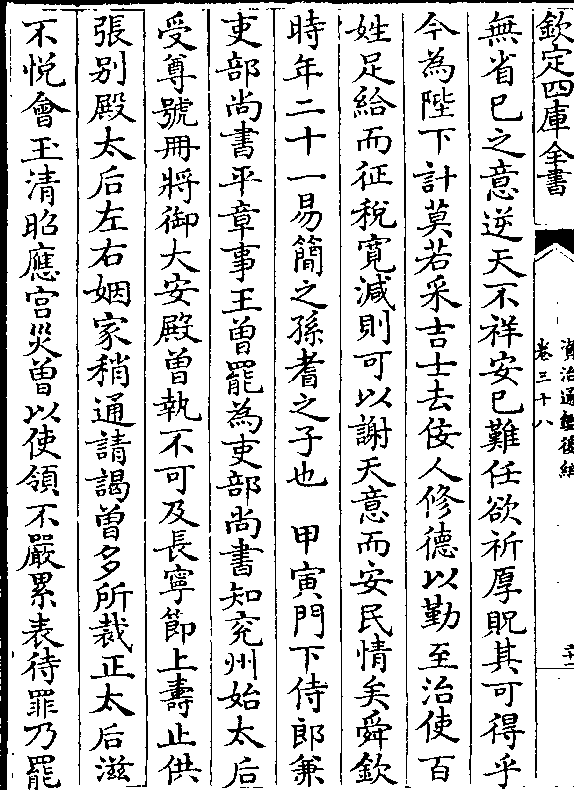 欽定四庫全書
資治通鑑後編
卷三十八
無省已之意逆天不祥安已難任欲祈厚貺其可得乎
今為陛下計莫若采吉士去佞人修德以勤至治使百
姓足給而征稅寛減則可以謝天意而安民情矣舜欽
時年二十一易簡之孫耆之子也　甲寅門下侍郎兼
吏部尚書平章事王曾罷為吏部尚書知兖州始太后
受尊號冊將御大安殿曾執不可及長寧節上壽止供
張别殿太后左右姻家稍通請謁曾多所裁正太后滋
不悦會玉清昭應宫災曾以使領不嚴累表待罪乃罷